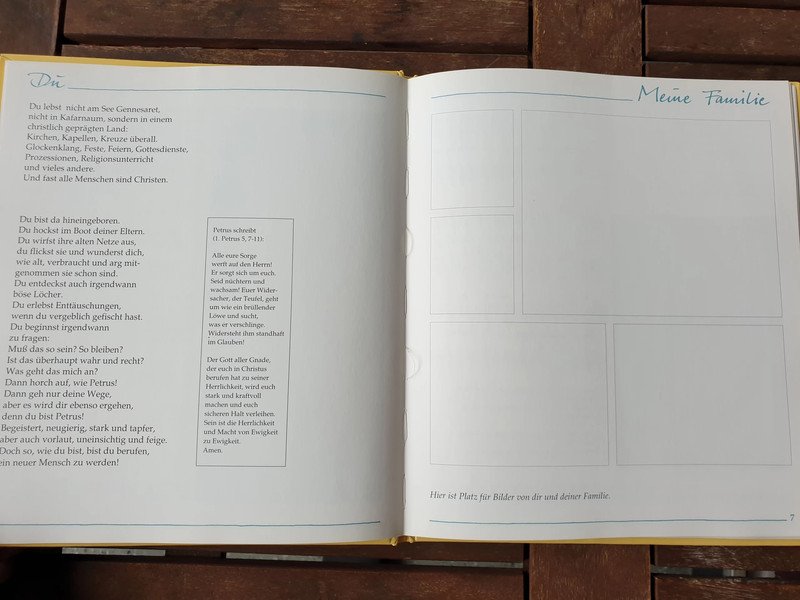 Du
Du lebst nicht am See Gennesaret,
nicht in Kafarnaum, sondern in einem
christlich geprägten Land:
Kirchen, Kapellen, Kreuze überall.
Glockenklang, Feste, Feiern, Gottesdienste,
Prozessionen, Religionsunterricht
und vieles andere.
Und fast alle Menschen sind Christen.
Du bist da hineingeboren.
Du hockst im Boot deiner Eltern.
Du wirfst ihre alten Netze aus,
du flickst sie und wunderst dich,
wie alt, verbraucht und arg mit-
genommen sie schon sind.
Du entdeckst auch irgendwann
böse Löcher.
Du erlebst Enttäuschungen,
wenn du vergeblich gefischt hast.
Du beginnst irgendwann
zu fragen:
Muß das so sein? So bleiben?
Ist das überhaupt wahr und recht?
Was geht das mich an?
Dann horch auf, wie Petrus!
Dann geh nur deine Wege,
aber es wird dir ebenso ergehen,
denn du bist Petrus!
Begeistert, neugierig, stark und tapfer,
aber auch vorlaut, uneinsichtig und feige.
Doch so, wie du bist, bist du berufen,
ein neuer Mensch zu werden!
Petrus schreibt
(1. Petrus 5, 7-11):
Alle eure Sorge
werft auf den Herrn!
Er sorgt sich um euch.
Seid nüchtern und
wachsam! Euer Wider-
sacher, der Teufel, geht
um wie ein brüllender
Löwe und sucht,
was er verschlinge.
Widersteht ihm standhaft
im Glauben!
Der Gott aller Gnade,
der euch in Christus
berufen hat zu seiner
Herrlichkeit, wird euch
stark und kraftvoll
machen und euch
sicheren Halt verleihen.
Sein ist die Herrlichkeit
und Macht von Ewigkeit
zu Ewigkeit.
Amen.
Meine Familie
Hier ist Platz für Bilder von dir und deiner Familie.
7